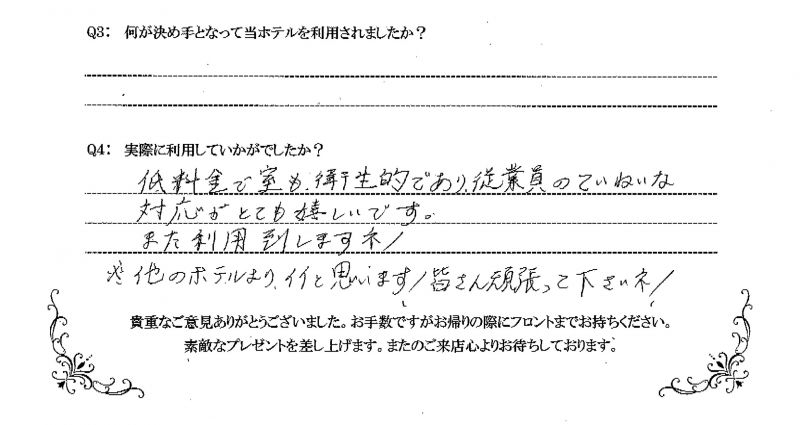 Q3: 何が決め手となって当ホテルを利用されましたか？
Q4: 実際に利用していかがでしたか？
低料金で室も、衛生的であり、従業員のていねいな
対応がとても嬉しいです。
また利用到しますネ!
※他のホテルより、イイと思います!皆さん頑張って下さいネ!
貴重なご意見ありがとうございました。お手数ですがお帰りの際にフロントまでお持ちください。
素敵なプレゼントを差し上げます。またのご来店心よりお待ちしております。